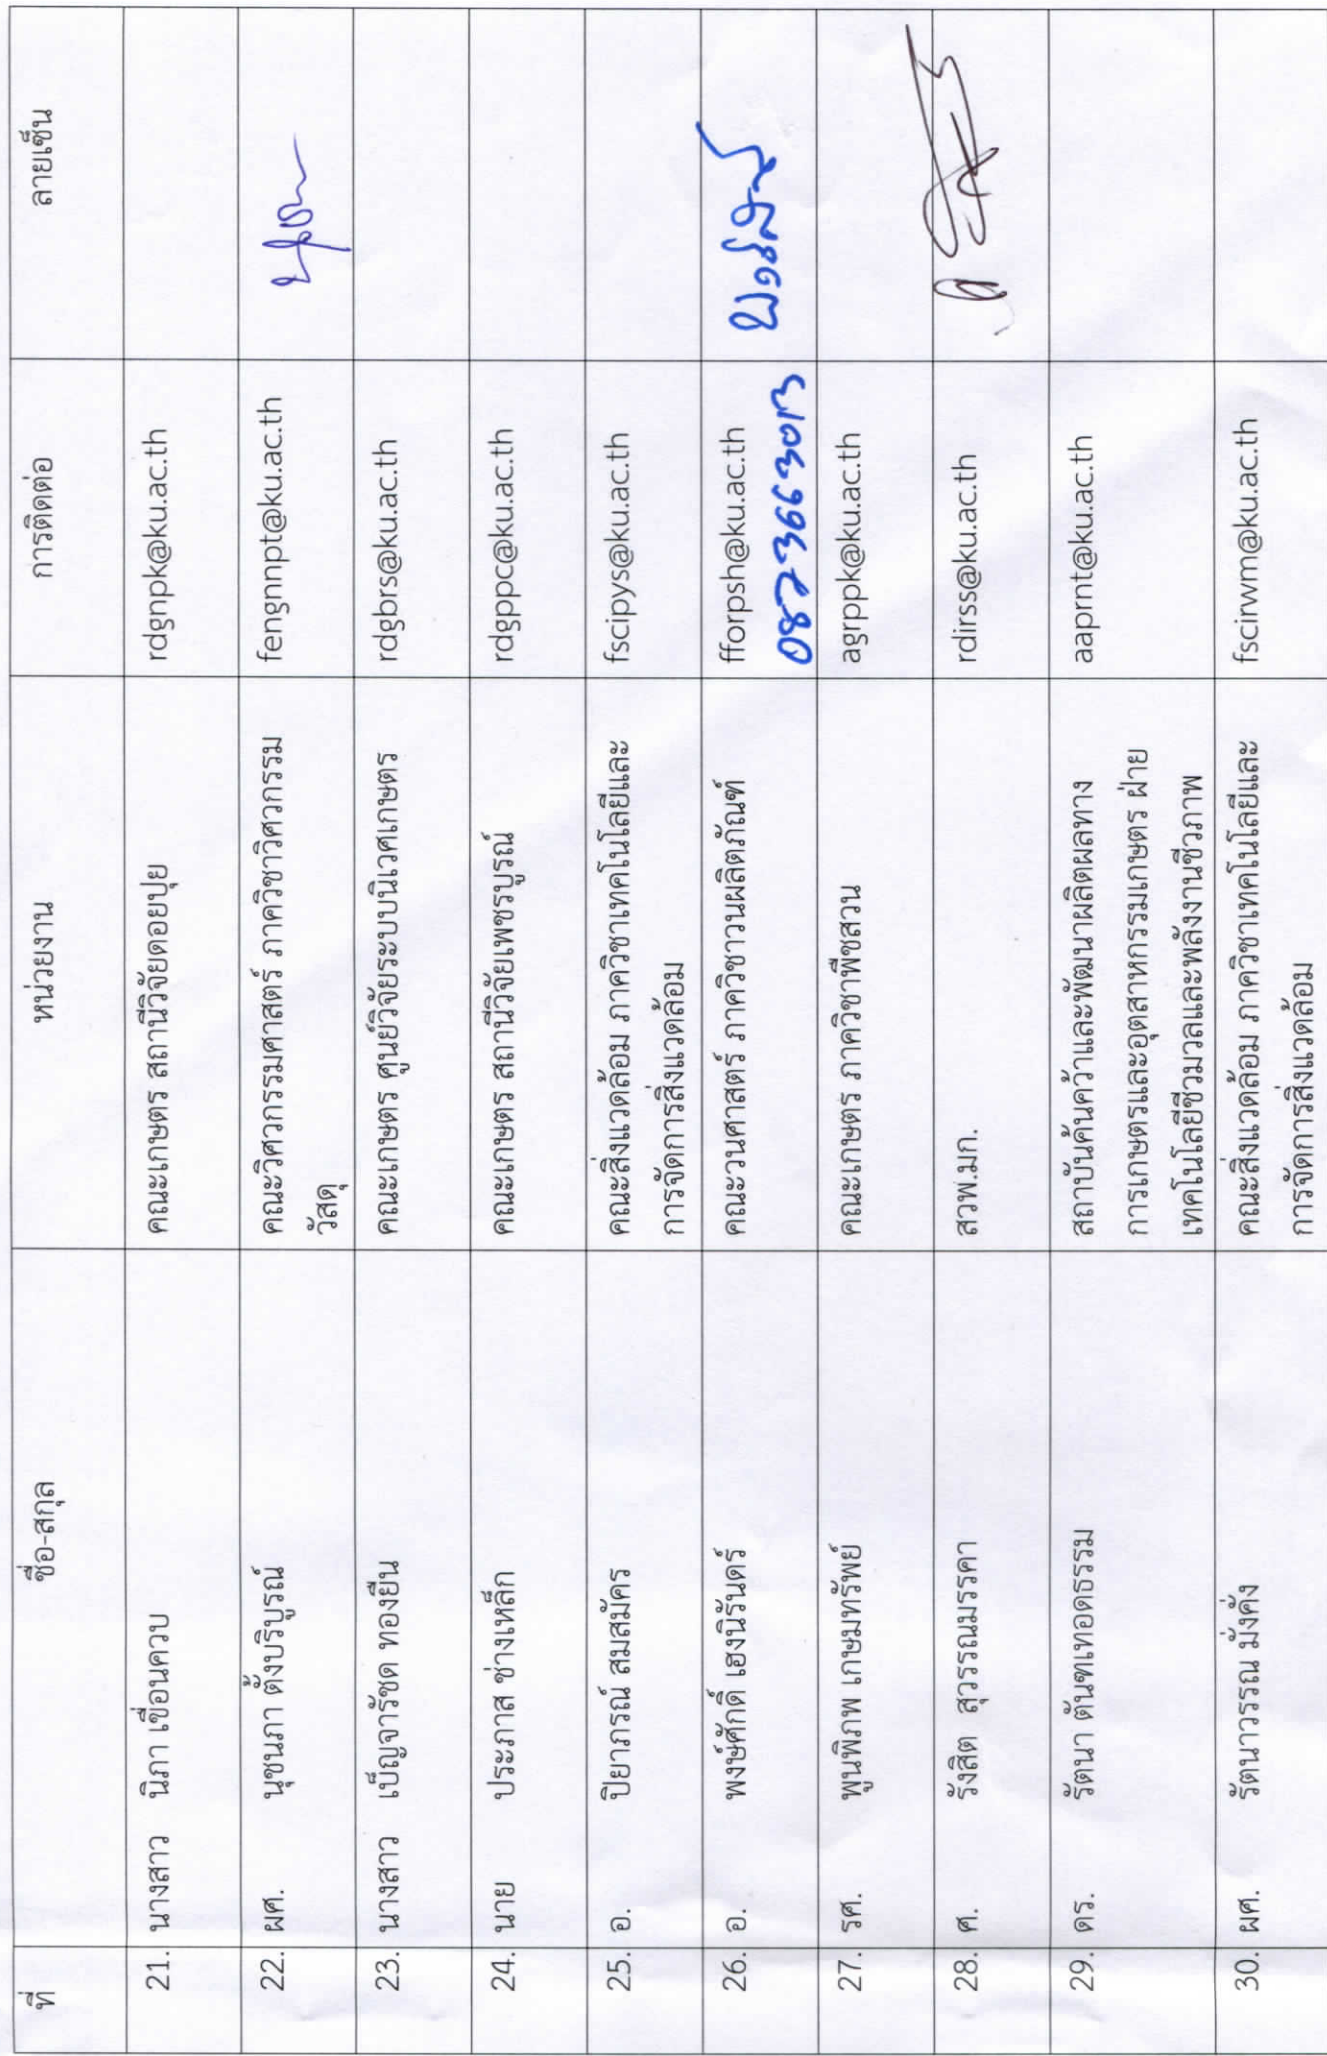 ที่ ชื่อ-สกุล หน่วยงาน การติดต่อ ลายเซ็น
21. นางสาว นิภา เขื่อนควบ คณะเกษตร สถานีวิจัยดอยปุย rdgnpk@ku.ac.th
22. ผศ. นุชนภา ตั้งบริบูรณ์ คณะวิศวกรรมศาสตร์ ภาควิชาวิศวกรรม fengnnpt@ku.ac.th
วัสดุ
23. นางสาว เบ็ญจารัชด ทองยืน คณะเกษตร ศูนย์วิจัยระบบนิเวศเกษตร rdgbrs@ku.ac.th
24. นาย ประภาส ช่างเหล็ก คณะเกษตร สถานีวิจัยเพชรบูรณ์ rdgppc@ku.ac.th
25. อ. ปิยาภรณ์ สมสมัคร คณะสิ่งแวดล้อม ภาควิชาเทคโนโลยีและ fscipys@ku.ac.th
การจัดการสิ่งแวดล้อม
26. อ. พงษ์ศักดิ์ เฮงนิรันดร์ คณะวนศาสตร์ ภาควิชาวนผลิตภัณฑ์ fforpsh@ku.ac.th
0873663013
27. รศ. พูนพิภพ เกษมทรัพย์ คณะเกษตร ภาควิชาพืชสวน agrppk@ku.ac.th
28. ศ. รังสิต สุวรรณมรรคา สวพ.มก. rdirss@ku.ac.th
29. ดร. รัตนา ตันฑเทอดธรรม สถาบันค้นคว้าและพัฒนาผลิตผลทาง aaprnt@ku.ac.th
การเกษตรและอุตสาหกรรมเกษตร ฝ่าย
เทคโนโลยีชีวมวลและพลังงานชีวภาพ
30. ผศ. รัตนาวรรณ มั่งคั่ง คณะสิ่งแวดล้อม ภาควิชาเทคโนโลยีและ fscirwm@ku.ac.th
การจัดการสิ่งแวดล้อม